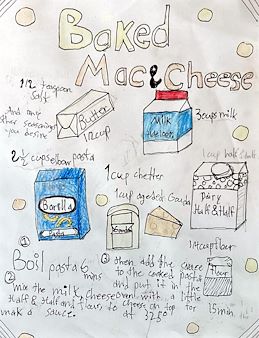 Baked
Mac & Cheese
1/2 teaspoon
Salt
And any
other seasonings
you desire
Butter
1/2 cup
Milk
3 cups milk
2 1/2 cups elbow pasta
1 cup half & half
1 cup chetter
1 cup aged Gouda
Dairy
Half & Half
Barilla
Pasta
Gouda
1/4 cup flour
flour
①
Boil pasta 6
mins
②
mix the milk, cheese,
Half & Half and flour, to
make a sauce.
③ then add the sauce
to the cooked pasta
and put it in the
oven with a little
cheese on top for
15 min
at 325°